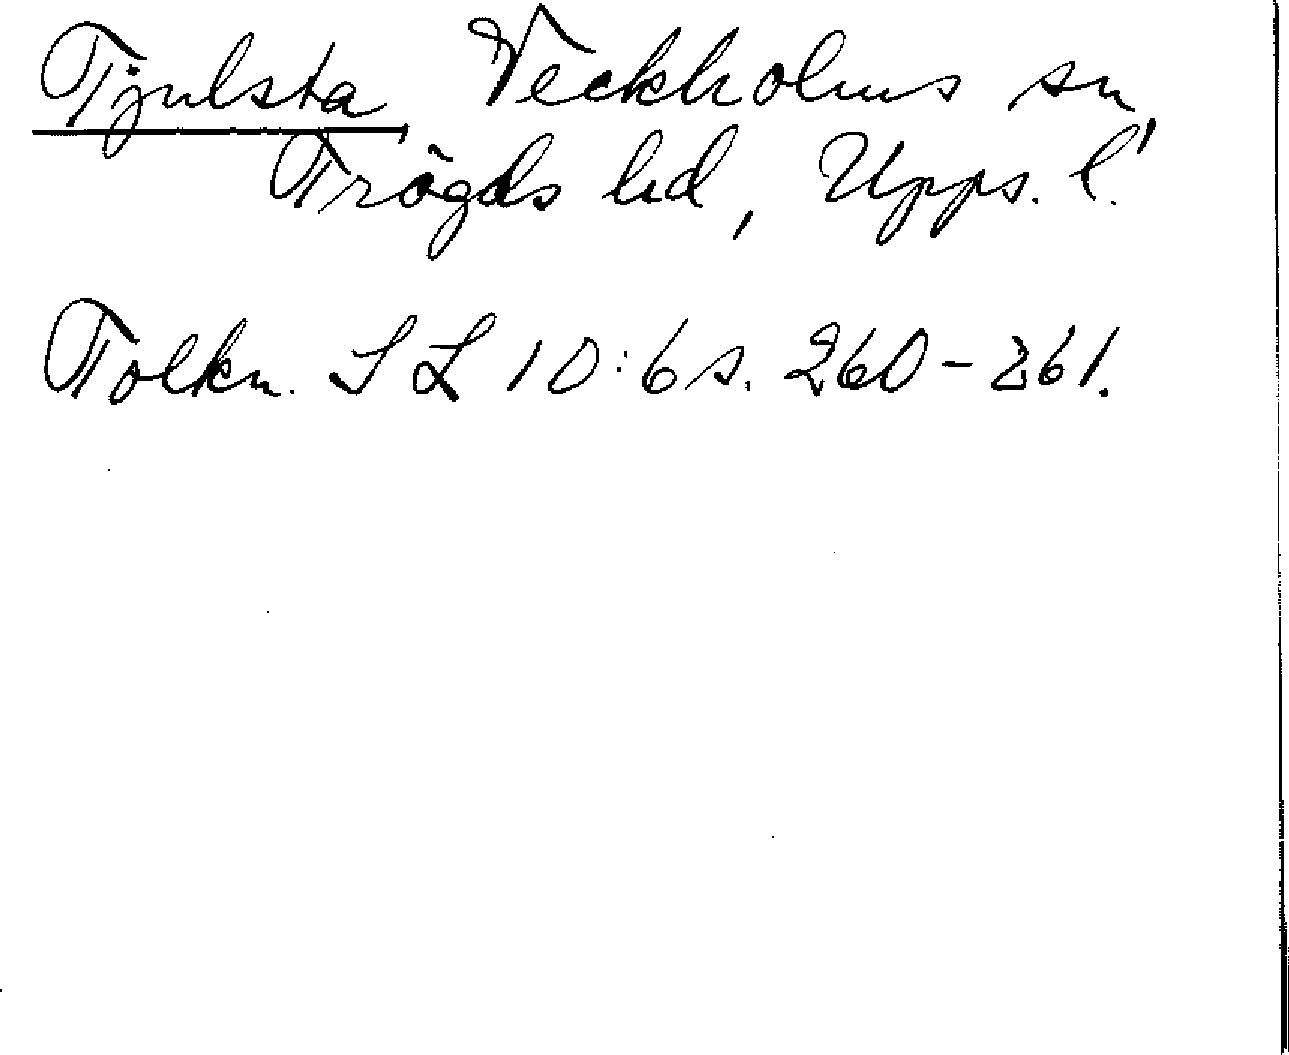 Tjulsta Veckholms sn,
Trögds hd, Upps. l.
Tolkn. SL 10:6 s. 260-261.